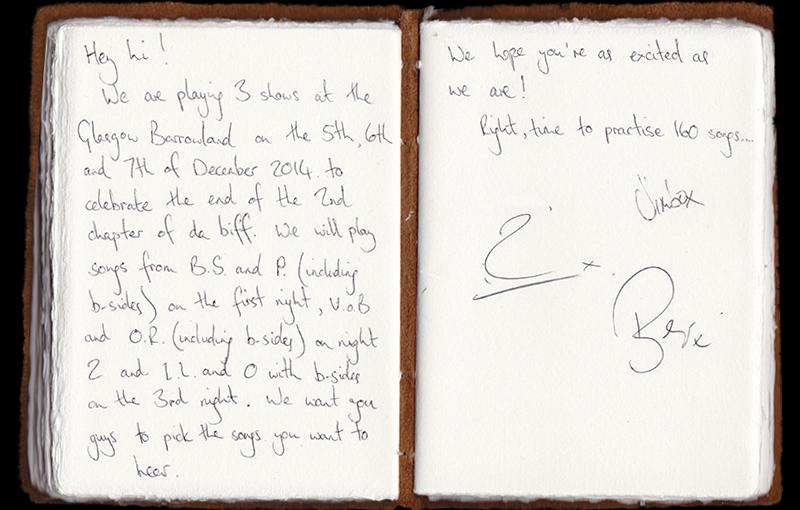 Hey hi!
We are playing 3 shows at the
Glasgow Barrowland on the 5th, 6th
and 7th of December 2014 to
celebrate the end of the 2nd
chapter of da biff. We will play
songs from B.S. and P. (including
b-sides) on the first night, V.o.B
and O.R. (including b-sides) on night
2 and I.L. and O with b-sides
on the 3rd night. We want you
guys to pick the songs you want to
hear.
We hope you're as excited as
we are!
Right, time to practise 160 songs....
Jimbox
x
Ben x